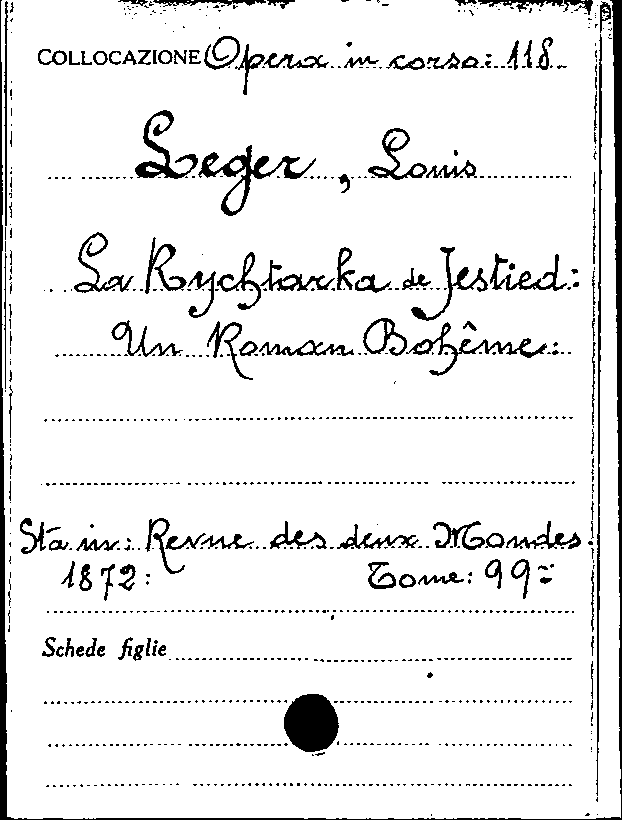 COLLOCAZIONE Opera in corso: 118
Leger, Louis
La Rychtarka de Jestied:
Un Roman Bohême:
Sta in: Revue des deux Mondes.
1872: Tome: 99=
Schede figlie